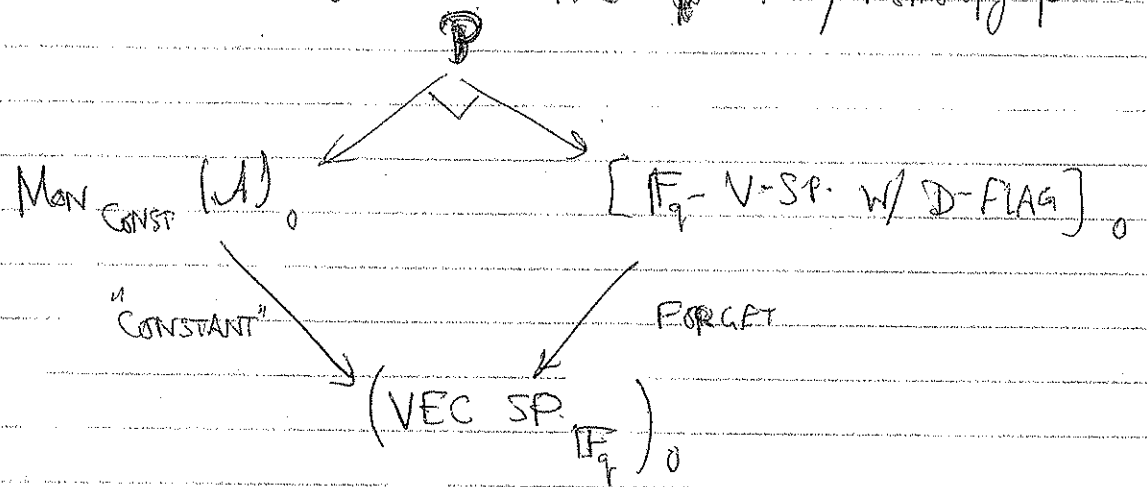 P
Mon CONST. (A)₀ [F_q - V-SP. W/ D-FLAG]₀
"CONSTANT" FORGET
(VEC SP. F_q)₀